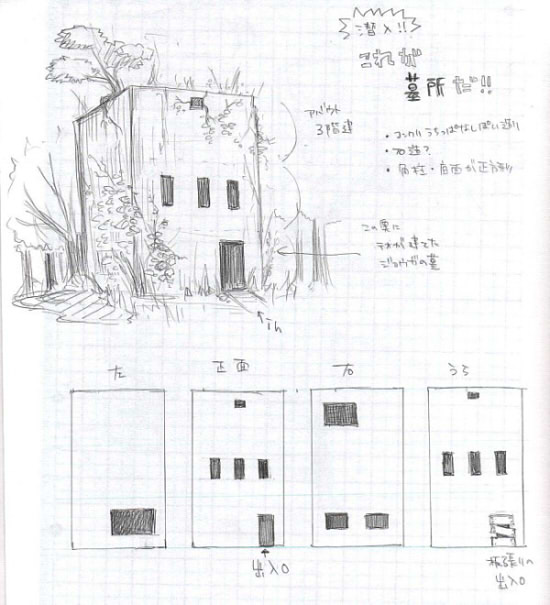 潜入!!
これが
墓所だ!!
アバウト
3階建
・コンクリうちっぱなしぽい造り
・石造?
・角柱・底面が正方形
この裏に
テオが建てた
ジョウガの墓
in
左
正面
右
うら
出入口
板張りの
出入口